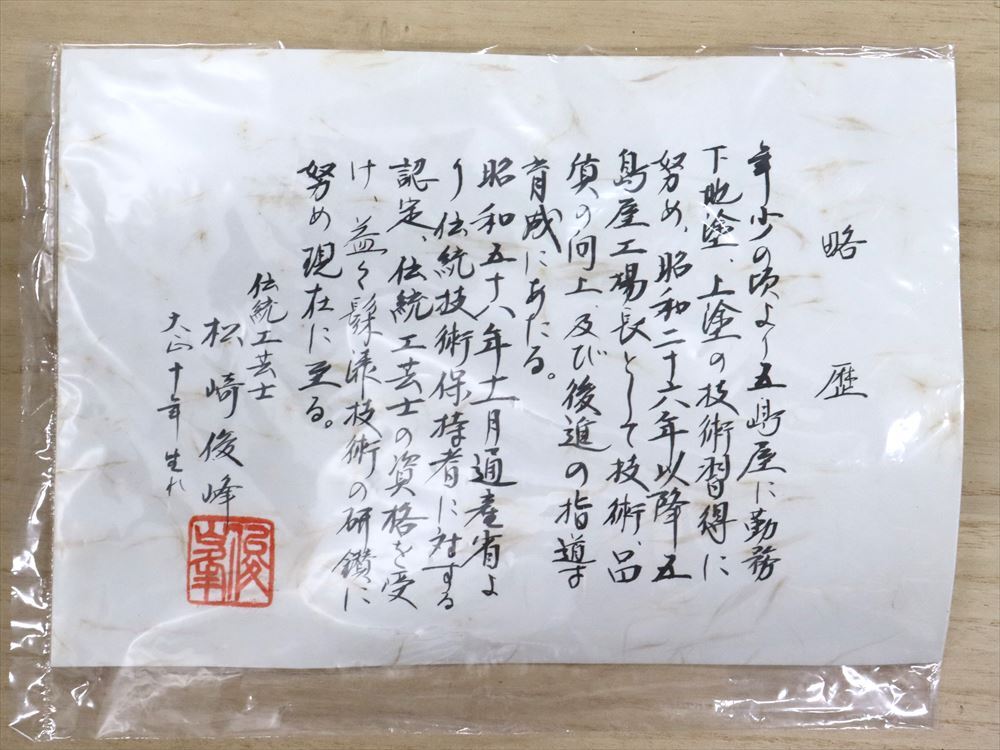 略歴
年少の頃より五嶋屋に勤務
下地塗、上塗の技術習得に
努め、昭和二十六年以降五
島屋工場長として技術、品
質の向上、及び後進の指導
育成にあたる。
昭和五十八年十一月通産省よ
り伝統技術保持者に対する
認定、伝統工芸士の資格を受
け、益々髹漆技術の研鑽に
努め現在に至る。
伝統工芸士
松崎俊峰
大正十年生れ
俊峯